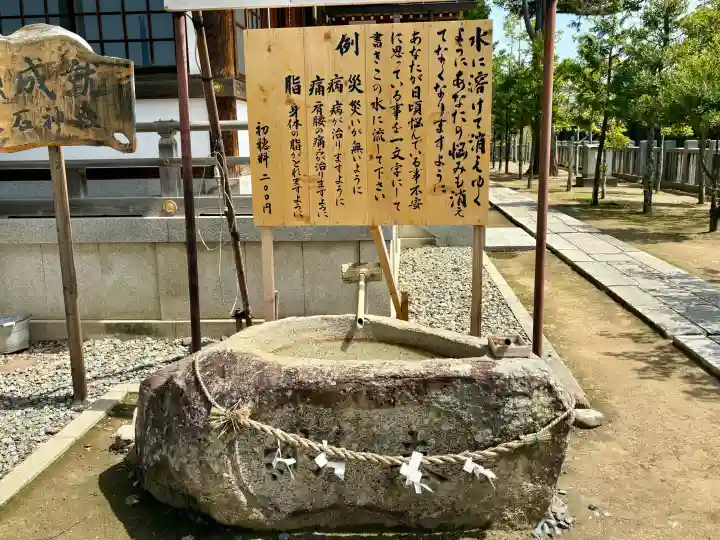 水に溶けて消えゆく
ようにあなたの悩みも消え
てなくなりますように
あなたが日頃悩んでいる事不安
に思っている事を一文字にして
書きこの水に流して下さい
例 災 災いが無いように
病 病が治りますように
痛 肩腰の痛が治りますように、
脂 身体の脂がとれますように、
初穂料 二〇〇円
成就
石神